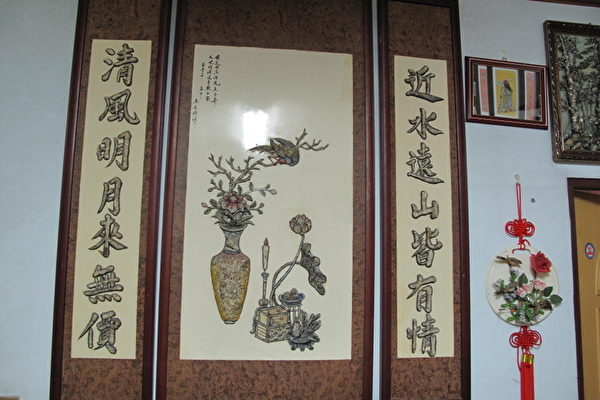 近水遠山皆有情
清風明月來無價